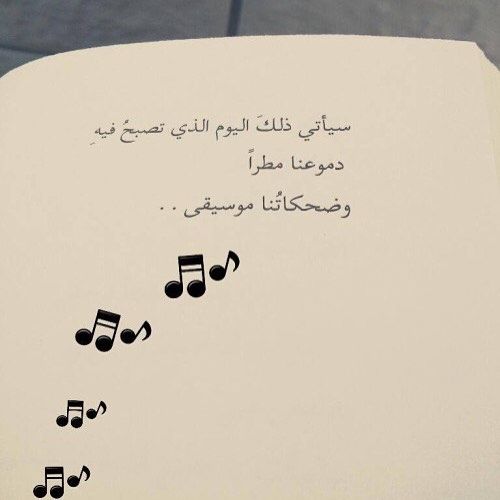 سيأتي ذلكَ اليوم الذي تصبحُ فيهِ
دموعنا مطراً
وضحكاتُنا موسيقى . .